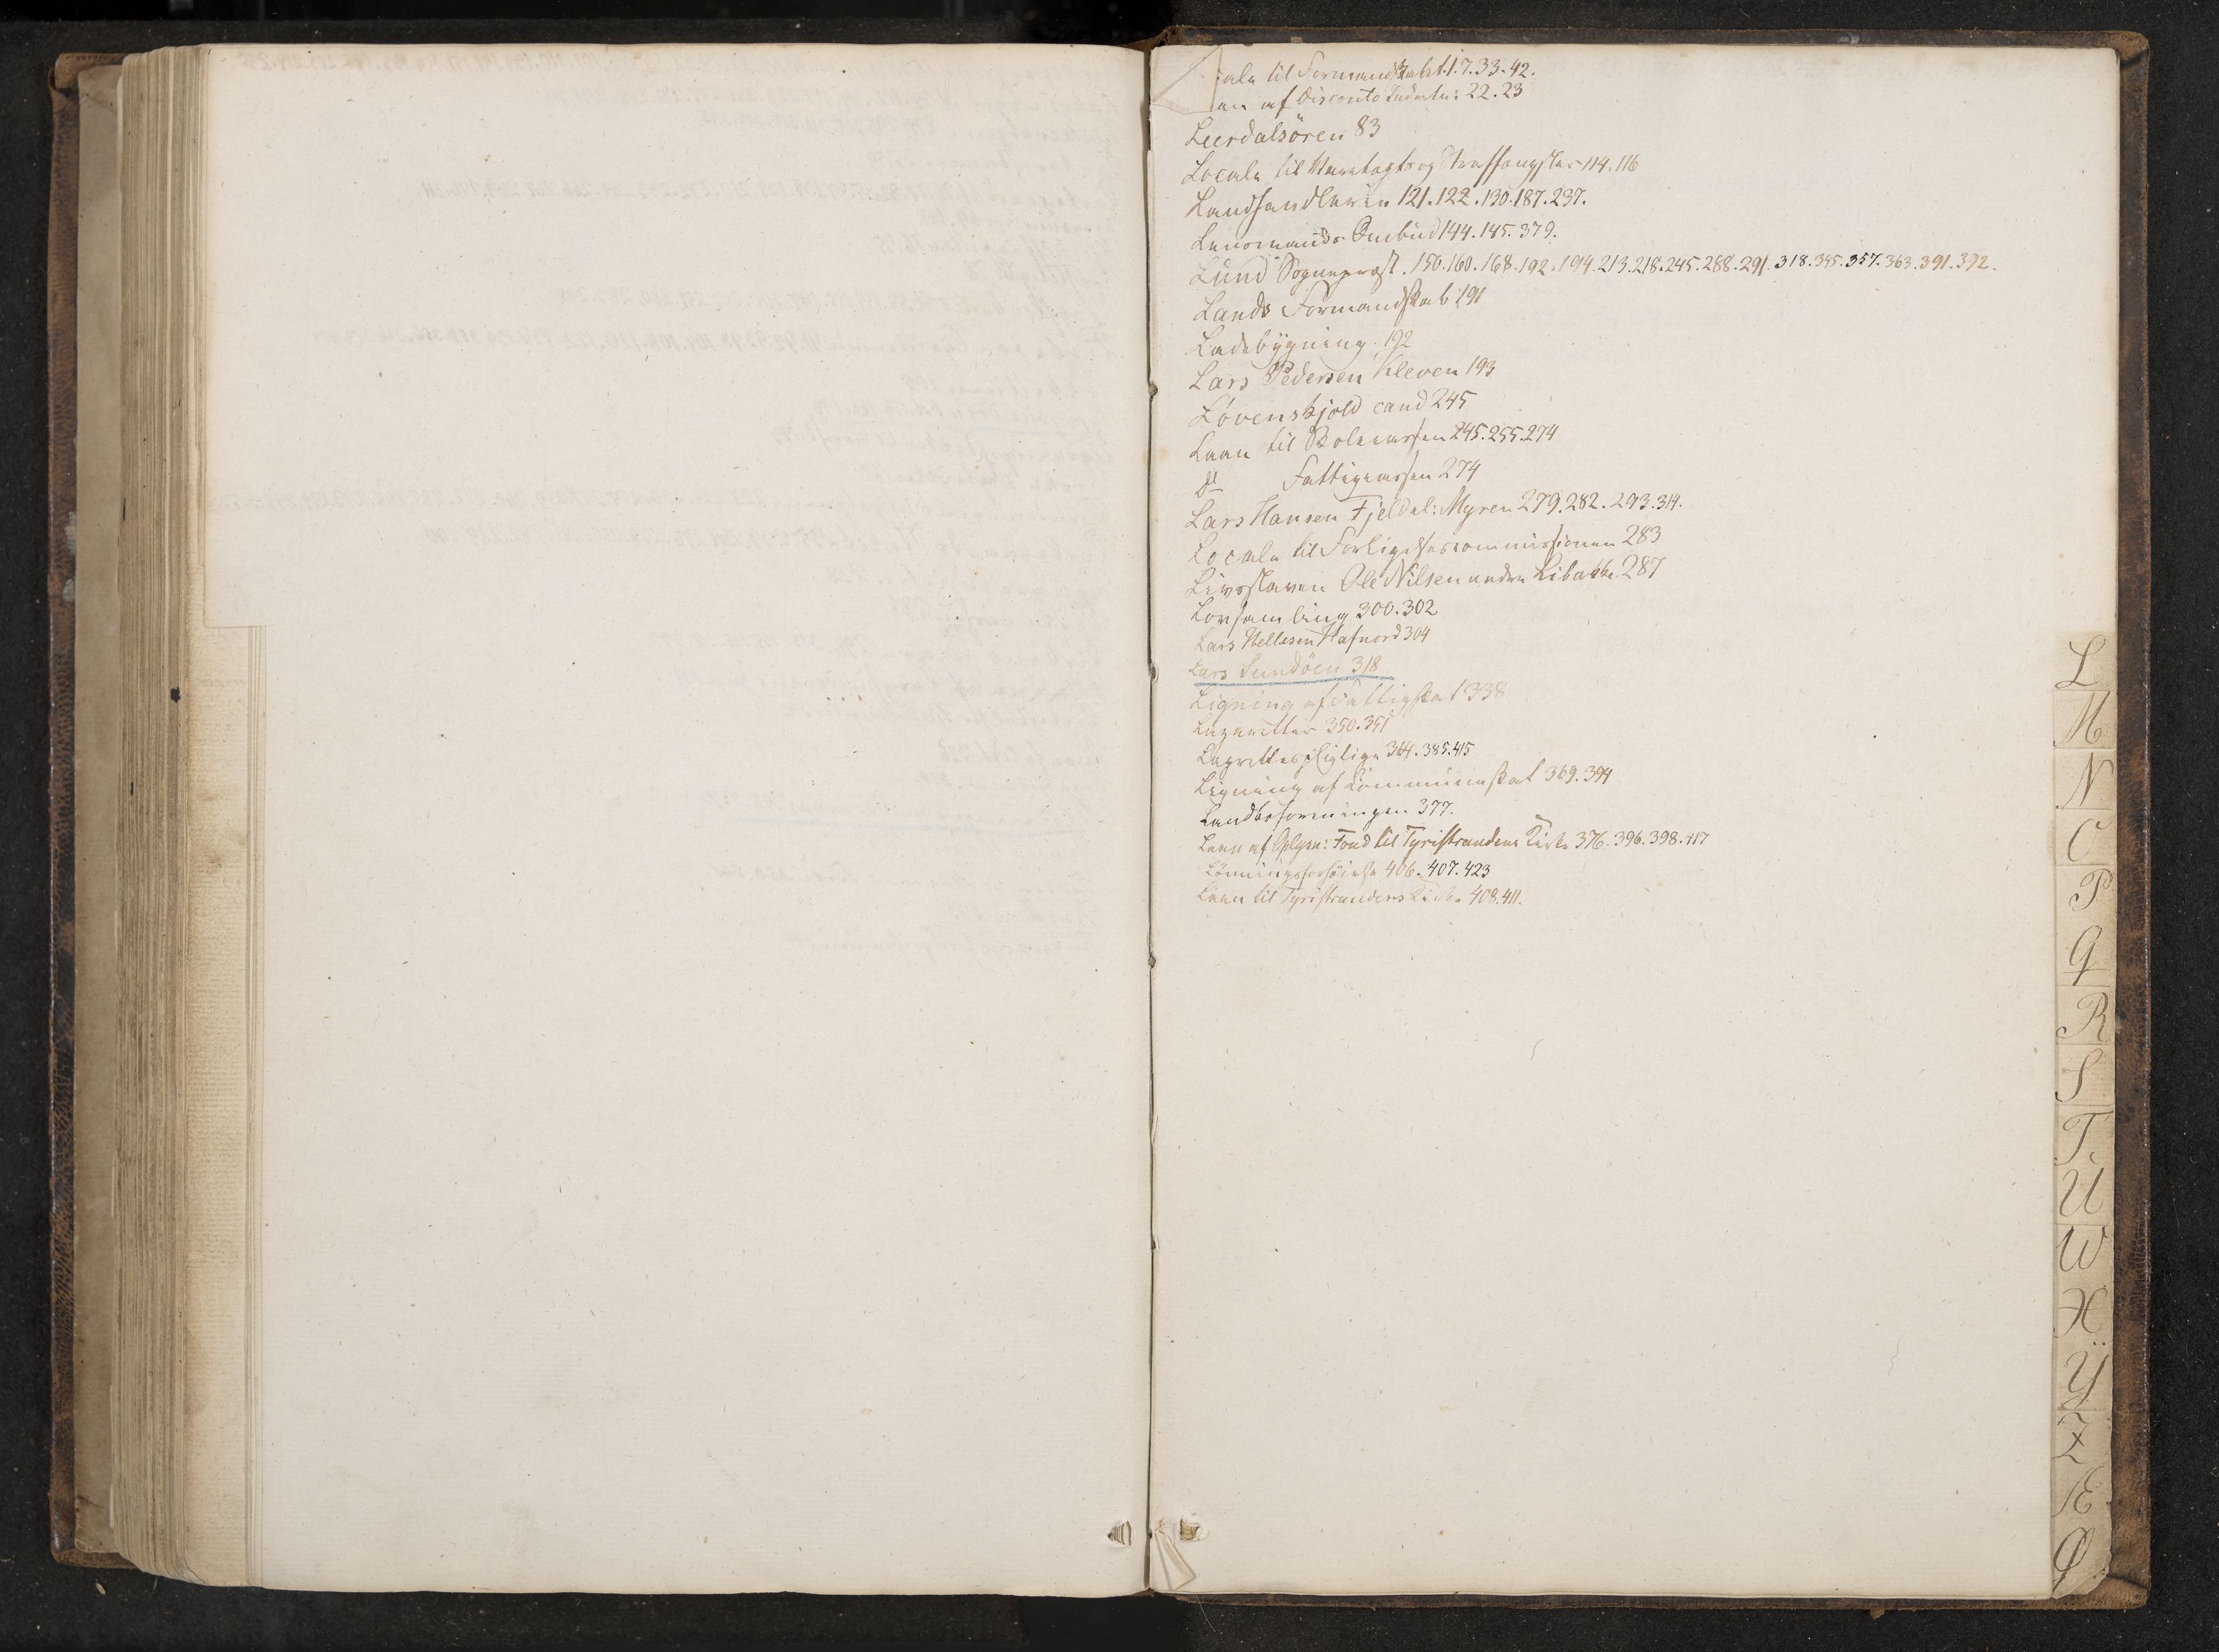 cale til Formandskabet 1.7.33.42.
an af Disconto Inderter: 22.23
Leerdalsören 83
Locale til Varetægts og Straffanyster 114.116
Landhandlerie 121.122.130.187.237.
Lensmands Ombud 144.145.379.
Lund Sognepræst. 150.160.168.192.194.213.218.245.288.291.318.345.357.363.391.392.
Lands Formandskab 191
Ladebygning. 192
Lars Pedersen Kleven 193
Lövenskjold cand 245
Laan til Skolecassen 245.255.274
Fattigcassen 274
Lars Hansen Fjeldal: Myren 279.282.293.314.
Locale til Forligelsescommissionen 283
Livsslaven Ole Nilsen 287
Lovsamling 300.302
Lars 304
Lars Sundöen 318
Ligning af Fattigskat 338
Lagretter 350.351
Lagrettespligtige 364.385.415
Ligning af Kommuneskat 369.394
Landboforeningen 377.
Laan af Oplysn: Fond til Tyristrandens Kirke 376.396.398.417
Lönningsforhöielse 406.407.423
Laan til Tyristrandens Kirke 408.411.
L
M
N
O
P
Q
R
S
T
U
W
X
Y
Z
Æ
Ø